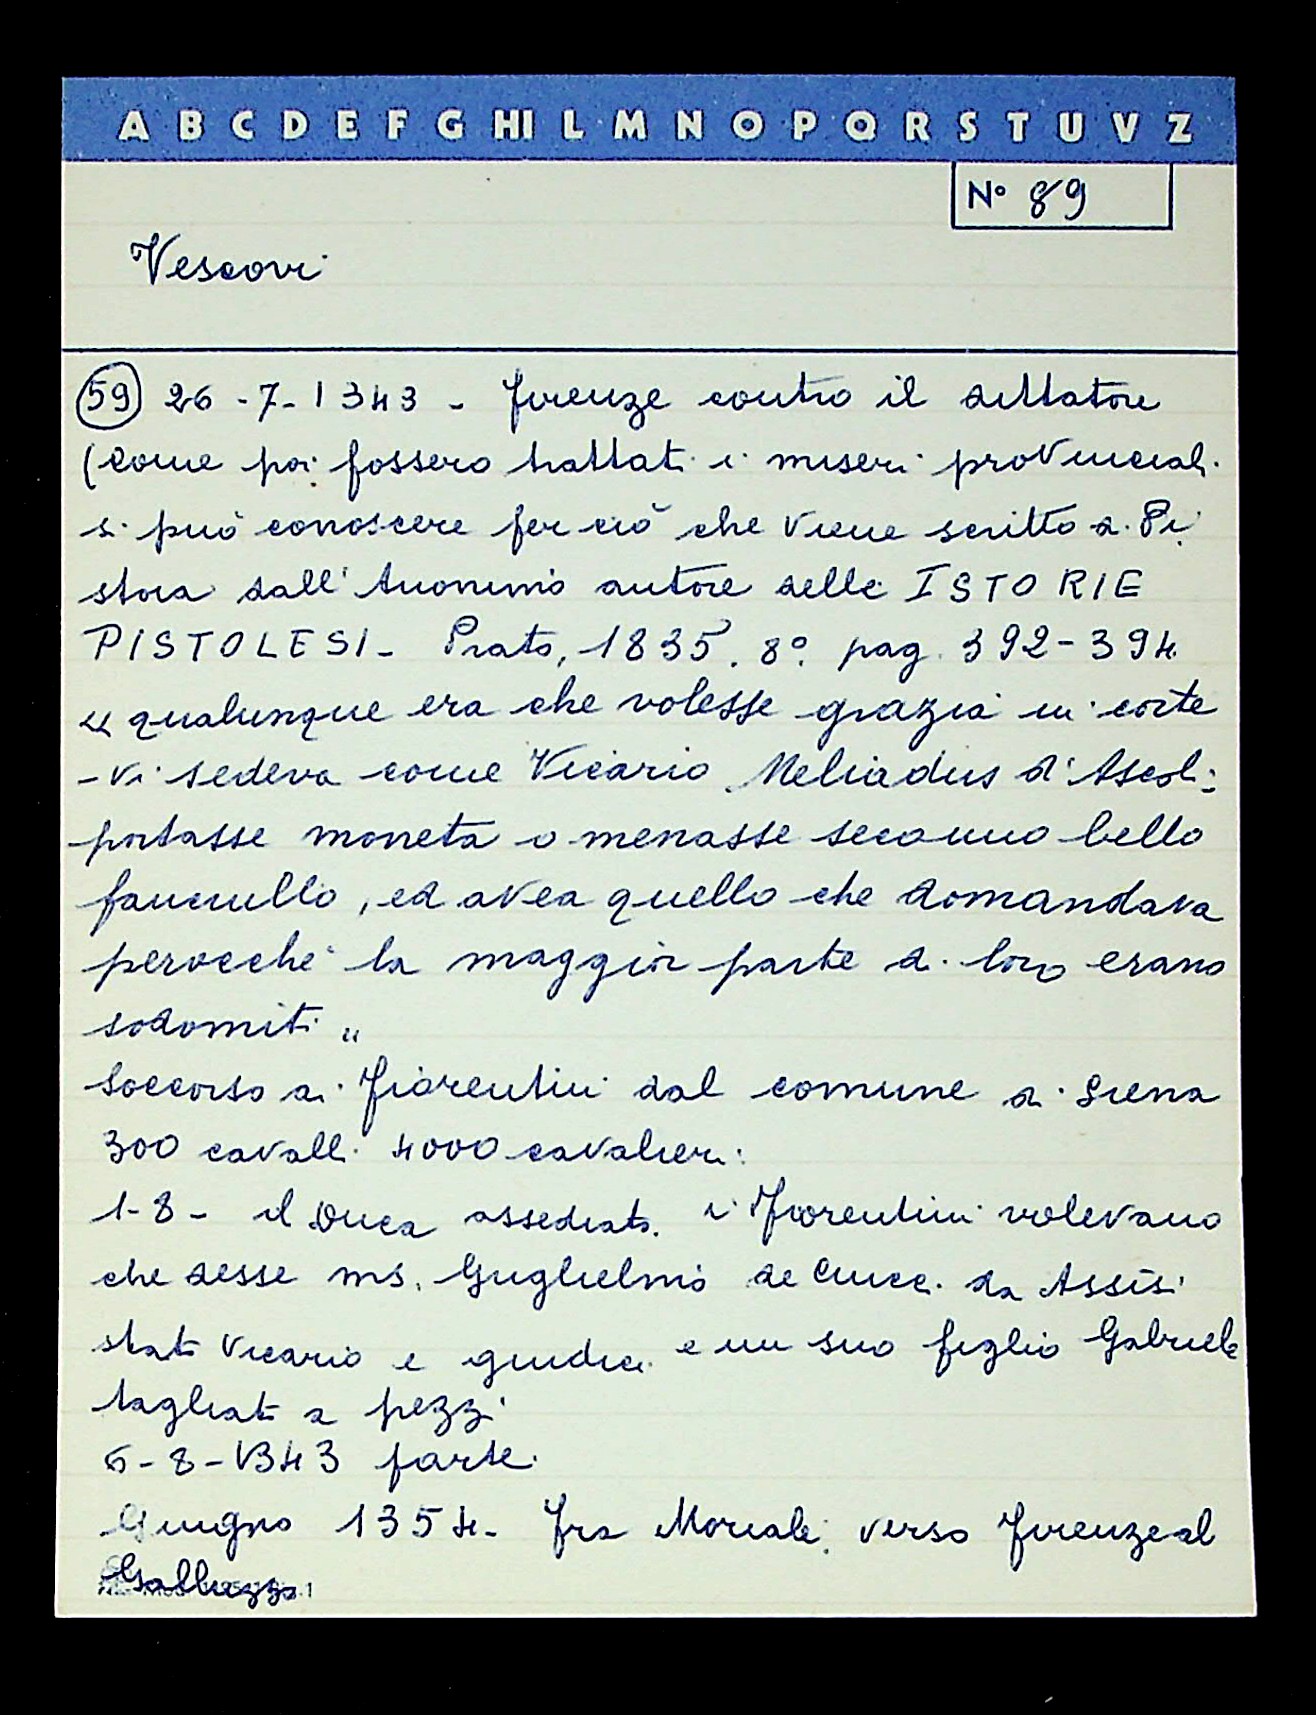 A B C D E F G HI L M N O P Q R S T U V Z
N° 89
Vescovi
59 26-7-1343 - Firenze contro il dittatore
(come poi fossero trattati i miseri provinciali
si può conoscere per ciò che viene scritto di Pi
stoia dall'Anonimo autore delle ISTORIE
PISTOLESI - Prato, 1835. 8° pag. 392-394
" qualunque era che volesse grazia in corte
- vi sedeva come Vicario Meliadus d'Ascoli:
portasse moneta o menasse seco uno bello
fanciullo, ed avea quello che domandava
perocché la maggior parte di loro erano
sodomiti "
Soccorso ai Fiorentini dal comune di Siena
300 cavalli 4000 cavalieri:
1-8- il Duca assediato. i Fiorentini volevano
che desse ms. Guglielmo de da Assisi
stato Vicario e giudice e un suo figlio Gabriele
tagliati a pezzi
6-8-1343 parte.
Giugno 1354. Fra Moriale: verso Firenze al
Galluzzo